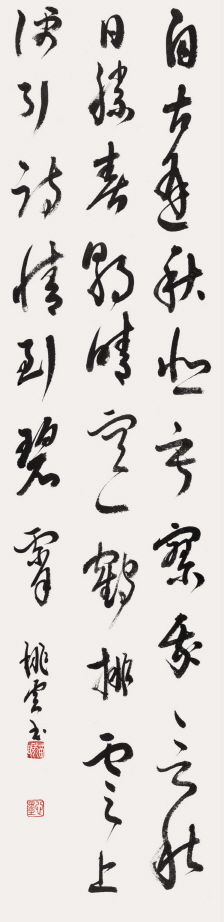 自古逢秋悲寂寥我言秋
日勝春朝晴空一鶴排雲上
便引詩情到碧霄
桃雲书